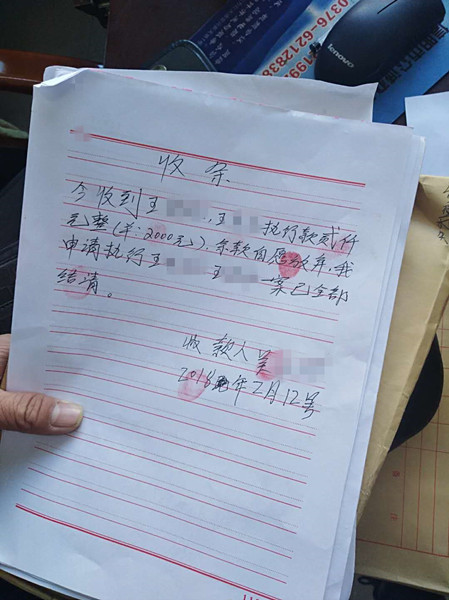 0376-6212838
lenovo
收条
今收到王 , 王 执行款贰仟
元整(￥:2000元). 余款自愿放弃, 我
申请执行王 王 一案已全部
结清。
收款人吴
2018年2月12号